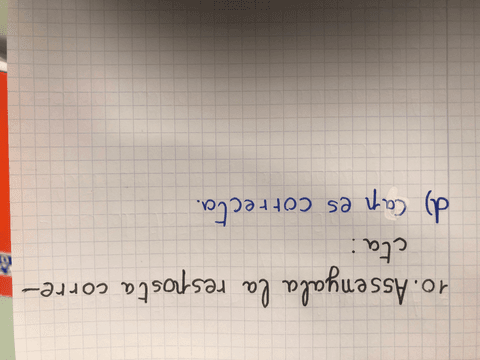 10. Assenyala la resposta corre-
cta:
d) cap es correcta.